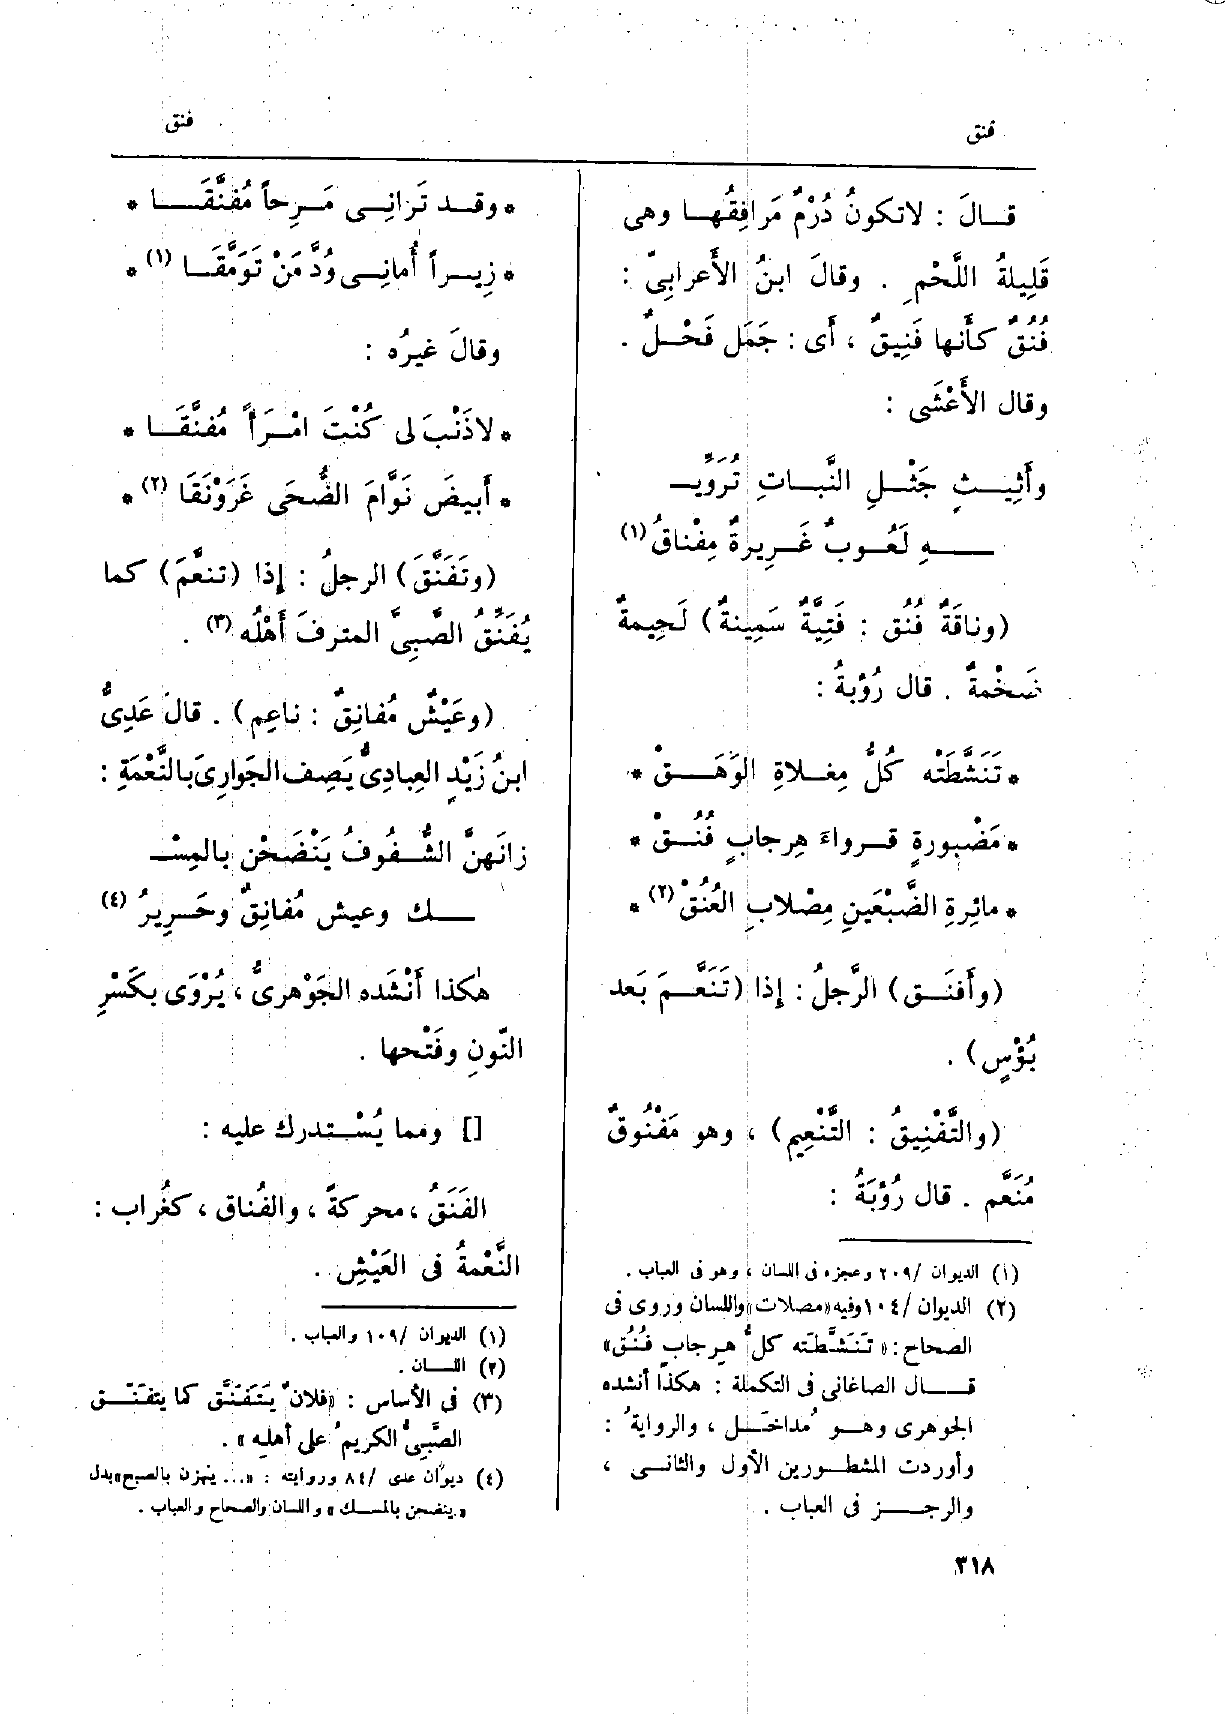 فنق
فنق
قـالَ : لاتكونُ دُرْمٌ مَرافِقُهـا وهى
قَلِيلةُ اللَّحْمِ . وقالَ ابنُ الأَعرابِىّ :
فُنُقٌ كأَنها فَنِيقٌ ، أَى : جَمَل فَحْـلٌ .
وقال الأَعْشَى :
وأَثِيـثٍ جَثْـلِ النَّبـاتِ تُرَوِّيـ
ـــهِ لَعُـوبٌ غَـرِيرةٌ مِفْناقُ (١)
(وناقَةٌ فُنُق : فَتِيَّةٌ سَمِينةٌ) لَحِيمةٌ
ضَخْمةٌ . قال رُؤْبةُ :
* تَنَشَّطَتْه كُلُّ مِغـلاةِ الوَهَـقْ *
* مَضْبورةٍ قـرواءَ هِرجابٍ فُنُـقْ *
* مائِرةِ الضَّبْعَينِ مِصْلابِ العُنُقْ (٢) *
(وأَفنَـق) الرَّجلُ : إِذا (تَنَعَّـمَ بَعد
بُؤْسٍ) .
(والتَّفْنِيقُ : التَّنْعِيم) ، وهو مَفْنُوقٌ
مُنَعَّم . قال رُؤبَةُ :
(١) الديوان /٢٠٩ وعجزه فى اللسان ، وهو فى العباب .
(٢) الديوان /١٠٤ وفيه «مصلات» واللسان وروى فى
الصحاح : « تَنَشَّطَتْه كلُّ هِرجابٍ فُنُق»
قـــال الصاغانى فى التكملة : هكذا أنشده
الجوهرى وهـو مُداخـل ، والروايةُ :
وأوردت المشطـورين الأول والثانـى ،
والرجـــز فى العباب .
* وقـد تَرانِـى مَـرِحاً مُفَنَّقَـا *
* زِيـراً أُمانِـى وُدَّ مَنْ تَوَمَّقَـا (١) *
وقالَ غيرُه :
* لاذَنْبَ لى كُنْتَ امْـرَأً مُفَنَّقَـا *
* أَبيضَ نَوَّامَ الضُّحَى غَرَوْنَقَا (٢) *
(وتَفَنَّقَ) الرجلُ : إِذا (تنعَّمَ) كما
يُفَنِّقُ الصَّبِىَّ المترفَ أَهْلُه (٣) .
(وعَيْشٌ مُفانِقٌ : ناعِم) . قالَ عَدِىُّ
ابنُ زَيْدٍ العِبادِىُّ يَصِف الجَوارِىَ بالنَّعْمَةِ :
زانَهنَّ الشُّـفُوفُ يَنْضَحْن بالمِسْـ
ـــك وعيش مُفانِقٌ وحَـرِيرُ (٤)
هٰكذا أَنْشَده الجَوْهرىُّ ، يُرْوَى بكَسْرِ
النّونِ وفَتْحها .
[] ومما يُسْتدرك عليه :
الفَنَقُ ، محركةً ، والفُناق ، كغُراب :
النَّعْمةُ فى العَيْشِ .
(١) الديوان /١٠٩ والعباب .
(٢) اللسـان .
(٣) فى الأساس : «فلانٌ يَتَفَنَّق كما يتفنّـق
الصَّبِىُّ الكريمُ على أهلِه» .
(٤) ديوان عدى /٨٤ وروايته : «... ينهزن بالصبح» بدل
« ينضحن بالمسـك » واللسان والصحاح والعباب .
٣١٨